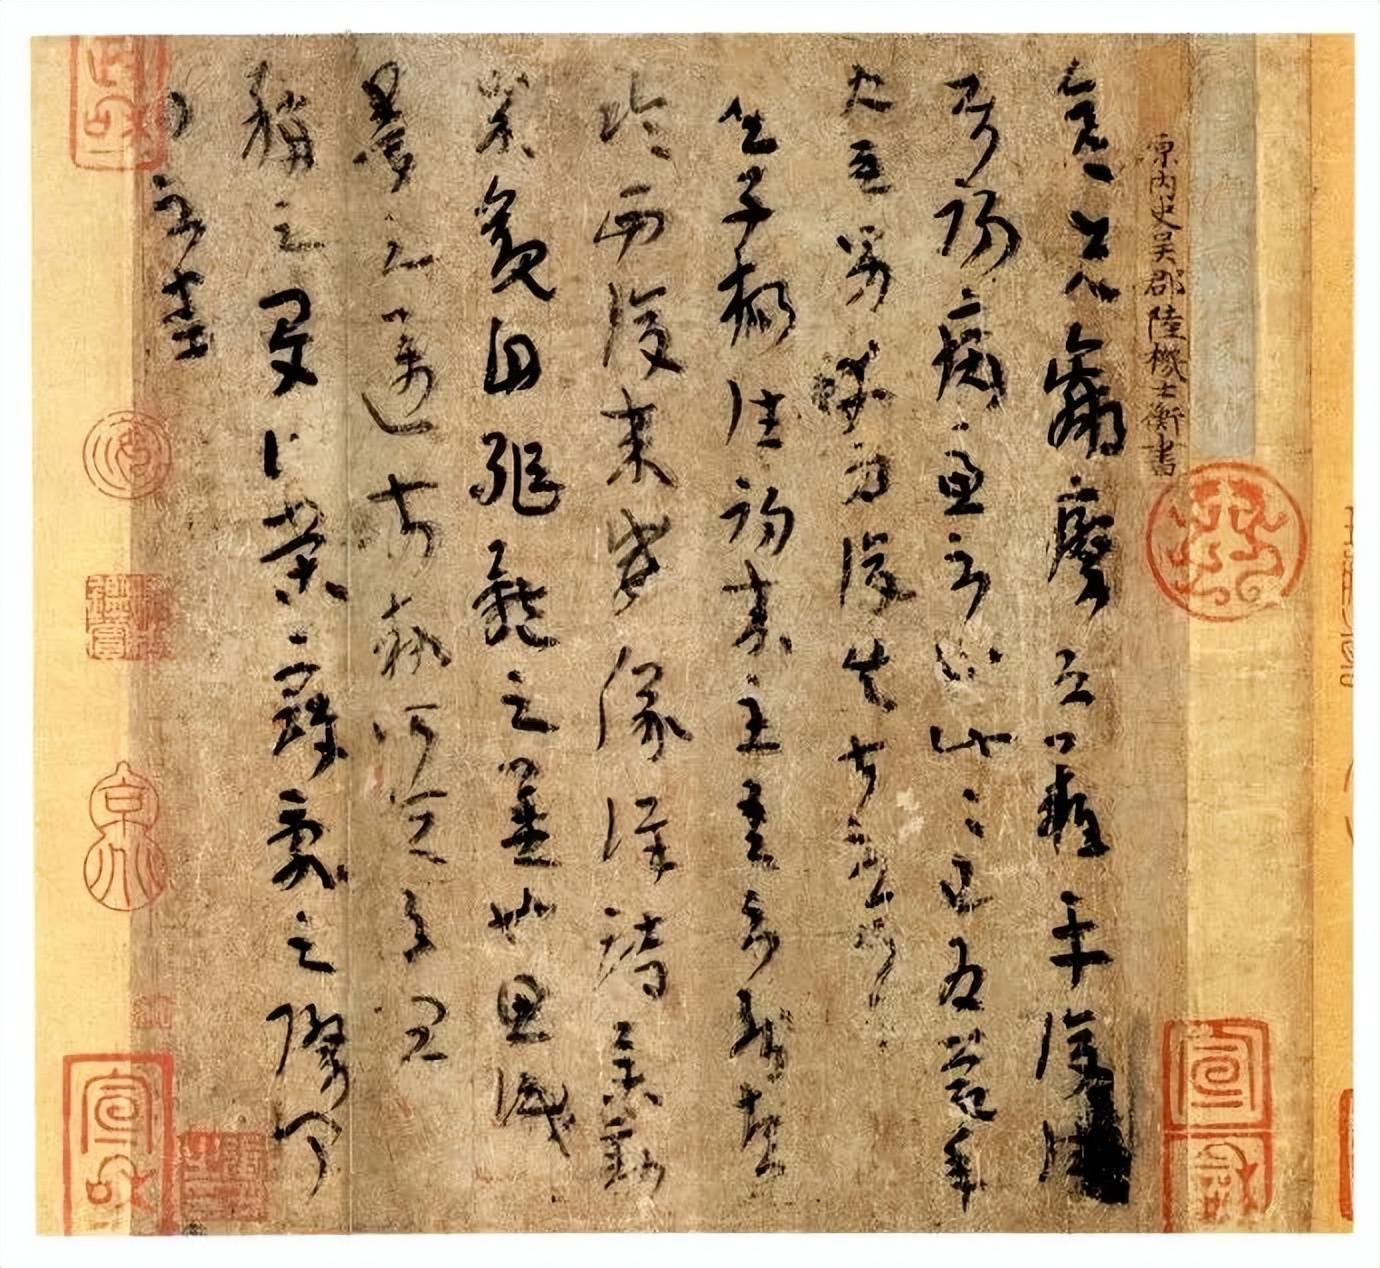 原内史吳郡陸機士衡書
彦先羸瘵恐難平復往
屬初病慮不止此此已為慶承
使唯男幸為復失前憂耳
吳子楊往初來主吾不能盡
臨西復來威儀詳跱舉動
成觀自軀體之美也思識
量之邁前執所恒有宜
稱之夏伯榮寇亂之際聞
問不悉
宣和
政和